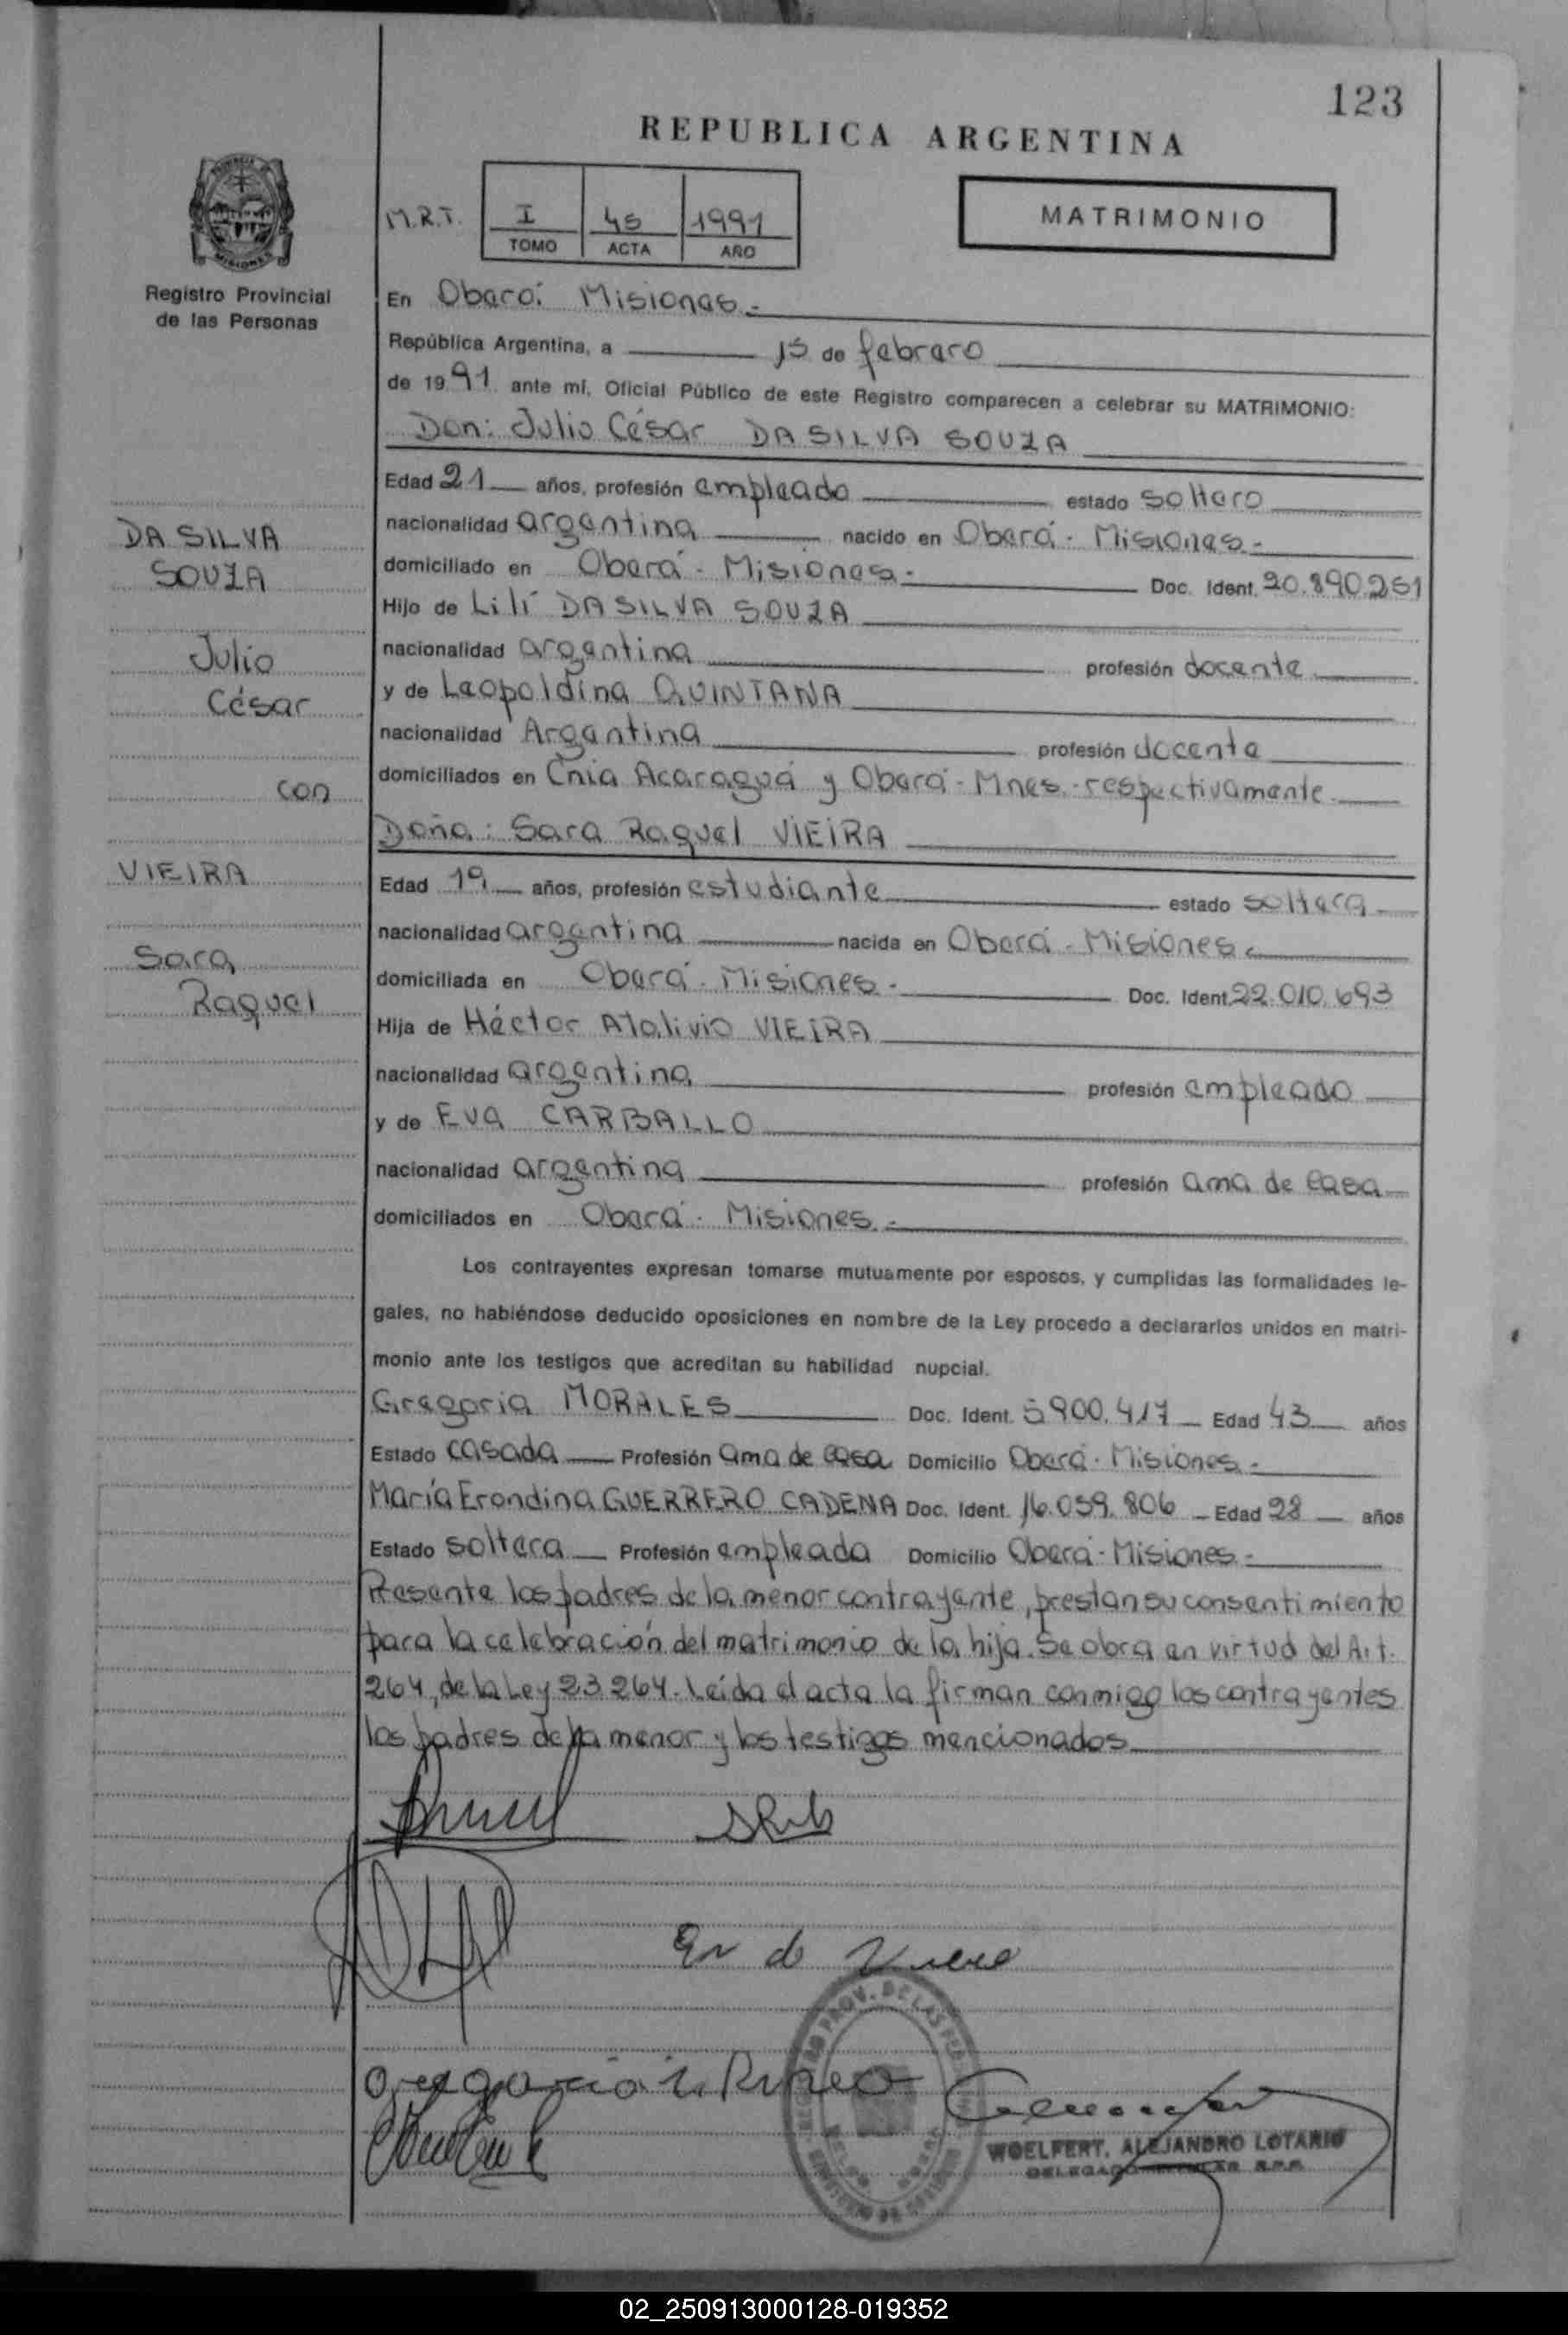 123
REPUBLICA ARGENTINA
M.R.T. I 45 1991
TOMO ACTA AÑO
MATRIMONIO
Registro Provincial
de las Personas
En Oberá. Misiones.-
República Argentina, a 15 de febrero
de 1991 ante mí, Oficial Público de este Registro comparecen a celebrar su MATRIMONIO:
Don: Julio César DA SILVA SOUZA
Edad 21 años, profesión empleado estado soltero
nacionalidad argentina nacido en Oberá - Misiones.-
domiciliado en Oberá - Misiones.- Doc. Ident. 20.890.251
Hijo de Lilí DA SILVA SOUZA
nacionalidad argentina profesión docente
y de Leopoldina QUINTANA
nacionalidad Argentina profesión docente
domiciliados en Cnia Acaraguá y Oberá - Mnes.- respectivamente
Doña: Sara Raquel VIEIRA
Edad 19 años, profesión estudiante estado soltera
nacionalidad argentina nacida en Oberá - Misiones.
domiciliada en Oberá - Misiones.- Doc. Ident. 22.010.693
Hija de Héctor Atalivio VIEIRA
nacionalidad argentina profesión empleado
y de Eva CARBALLO
nacionalidad argentina profesión ama de casa
domiciliados en Oberá - Misiones.-
DA SILVA
SOUZA
Julio
César
con
VIEIRA
Sara
Raquel
Los contrayentes expresan tomarse mutuamente por esposos, y cumplidas las formalidades le-
gales, no habiéndose deducido oposiciones en nombre de la Ley procedo a declararlos unidos en matri-
monio ante los testigos que acreditan su habilidad nupcial.
Gregoria MORALES Doc. Ident. 5900.417 Edad 43 años
Estado casada Profesión ama de casa Domicilio Oberá - Misiones.-
María Erondina GUERRERO CADENA Doc. Ident. 16.059.806 Edad 28 años
Estado soltera Profesión empleada Domicilio Oberá - Misiones.-
Presente los padres de la menor contrayente, prestan su consentimiento
para la celebración del matrimonio de la hija. Se obra en virtud del Art.
264, de la Ley 23.264. Leída el acta la firman conmigo los contrayentes
los padres de la menor y los testigos mencionados
WOELFERT, ALEJANDRO LOTARIO
02_250913000128-019352